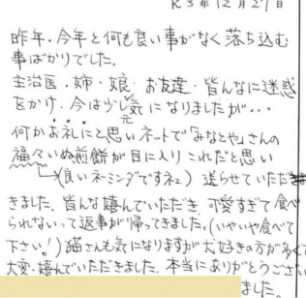 R3年12月27日
昨年、今年と何も良い事がなく落ち込む
事ばかりでした。
主治医、姉・娘・お友達・皆んなに迷惑
をかけ、今は少し元気になりましたが・・・
何かお礼にと思いネットで「みなとや」さんの
福々いぬ煎餅が目に入りこれだと思い
→(良いネーミングですネ) 送らせていただ
きました。皆んな嬉んでいただき、可愛すぎて食べ
られないって返事が帰ってきました。(いやいや食べて
下さい!) 猫さんも気になりますが犬好きの方が多くて
大変、嬉んでいただきました。本当にありがとうござい
ました。